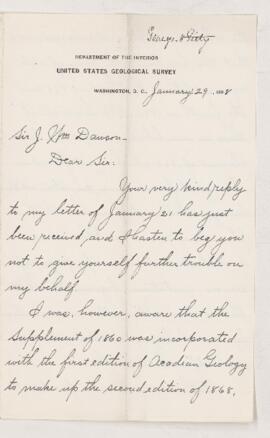 DEPARTMENT OF THE INTERIOR
UNITED STATES GEOLOGICAL SURVEY
WASHINGTON, D. C. January 29, 1888
Sir J. Wm Dawson
Dear Sir:
Your very kind reply
to my letter of January 21 has just
been received, and I hasten to beg you
not to give yourself further trouble on
my behalf.
I was, however, aware that the
Supplement of 1860 was incorporated
with the first edition of Acadian Geology
to make up the second edition of 1868,